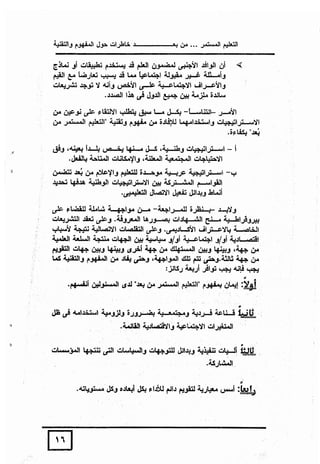 التعليم المستمر ... من بعـــــــد خاطرات حول المفهوم والتقنية
أن الوافد الأجنبى لمضمون العلم قد يستخدم تطبيقات أو نماذج
وأمــثلة غــير مقبولة اجتماعياً مما قد يسبب تعارضاً مع القيم
والأعــراف الاجتماعــية علــى الأخص وأنه لا توجد تشريعات
سائدة ملزمة بين جميع الدول فى هذا الصدد.
الأمــر -التناســا- بكــل مــا سبق يتطلب الالتقاء على نوعين من
الاســتراتيجيات واستخدامهما للإفادة من مفهوم وتقنية "التعليم المستمر من
بُعد" بكفاءة.
أ - اســتراتيجيات وطنــية، كــل مــنها يخــص بلــداً بعينه، وفق
الاحتياجات المجتمعية المعلنة، والإمكانات المتاحة بالفعل.
ب- استراتيجية عربــية موحــدة للتعليم والإعلام من بُعد تتضمن
القواســم المشــتركة بين الاستراتيجيات الوطنية هدفها تحديد
أنماط وبدائل تفعيل الاتصال التعليمى.
ولابــد -بــنظرة للمــراجعة- مــن مواجهــة شاملة للقضاء على
بيروقراطــية مــنح الشــهادات بصــورها المعروفة. وعلى تعقد التشريعات
الخاصــة بالاعــتراف الأكــاديمى. وعلى التقلصات الاتصالية نتيجة لأسباب
اقتصــادية أو/و اجتماعــية أو/و سياسية بين الجهات منتجة السلعة العلمية
من جهة، وبينها وبين المستهلك من جهة أخرى وبينها وبين جهات التقويم
من جهة ثالثة.وحتى تتم تلك المواجهة، وحتى يفاد من المفهوم والتقنية كما
يجب فإنه يجب توافر أربعة ركائز:
أولاً: إيمان بمفهوم "التعليم المستمر من بعد" لدى المسئولين أنفسهم.
ثانياً: قــناعة فــردية ومجتمعــية بضــرورة ولزومية استخدامه فى ظل
المتغيرات الاجتماعية والاقتصادية القائمة.
ثالثاً: آلــيات تنفيذية وبدائل للتوجهات والسياسات التى تنتجها المؤسسات
المشاركة.
رابعاً: أسس معيارية لتقويم دائم للأداء بكل أبعاده وكل مستوياته.
١٦